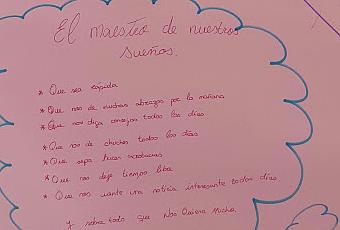 El maestro de nuestros
sueños.
* Que sea rápida
* Que nos de muchos abrazos por la mañana
* Que nos diga consejos todos los días
* Que nos de chuches todos los días
* Que sepa hacer acrobacias
* Que nos deje tiempo libre
* Que nos cuente una noticia interesante todos días
Y sobre todo que Nos Quiera Mucho